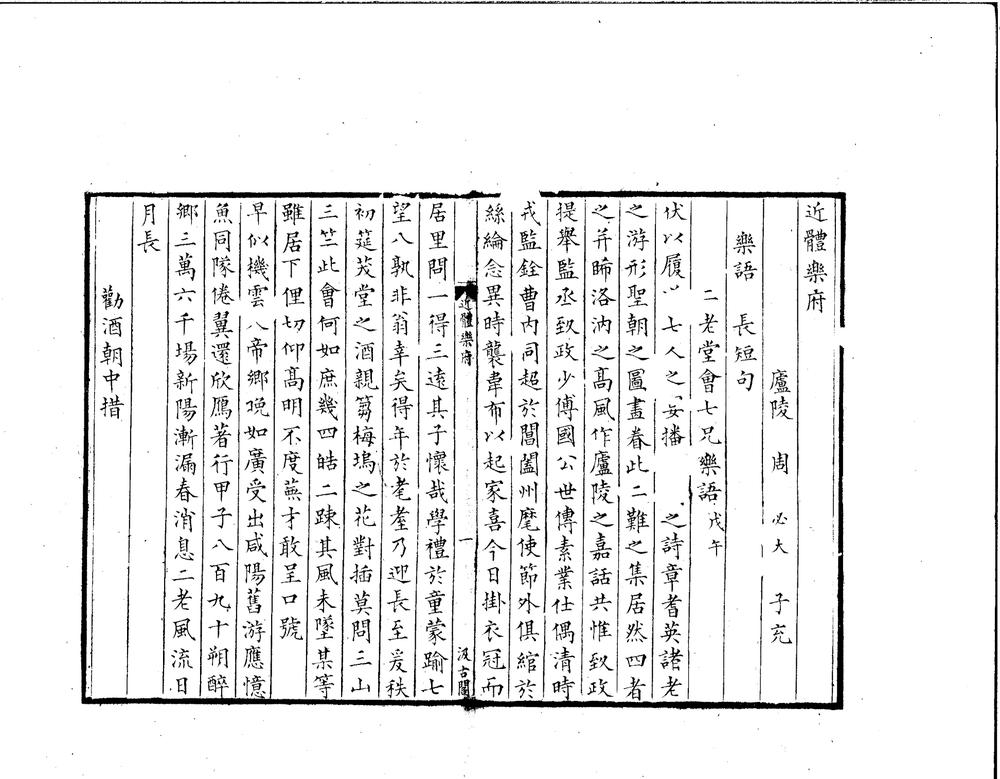 近體樂府
廬陵 周 必大 子充
樂語 長短句
二老堂會七兄樂語戊午
伏以履 七人之 安播 之詩章耆英諸老
之游形聖朝之圖畫眷此二難之集居然四者
之并睎洛汭之高風作廬陵之嘉話共惟致政
提舉監丞致政少傅國公世傳素業仕偶清時
戎監銓曹內同超於閶闔州麾使節外俱綰於
絲綸念異時襲韋布以起家喜今日掛衣冠而
近體樂府 一 汲古閣
居里問一得三遠其子懷哉學禮於童蒙踰七
望八孰非翁幸矣得年於耄耋乃迎長至爰秩
初筵茂堂之酒親蒭梅塢之花對插莫問三山
三竺此會何如庶幾四皓二踈其風未墜某等
雖居下俚切仰高明不度蕪才敢呈口號
早似機雲入帝鄉晚如廣受出咸陽舊游應憶
魚同隊倦翼還欣鴈著行甲子八百九十朔醉
鄉三萬六千場新陽漸漏春消息二老風流日
月長
勸酒朝中措